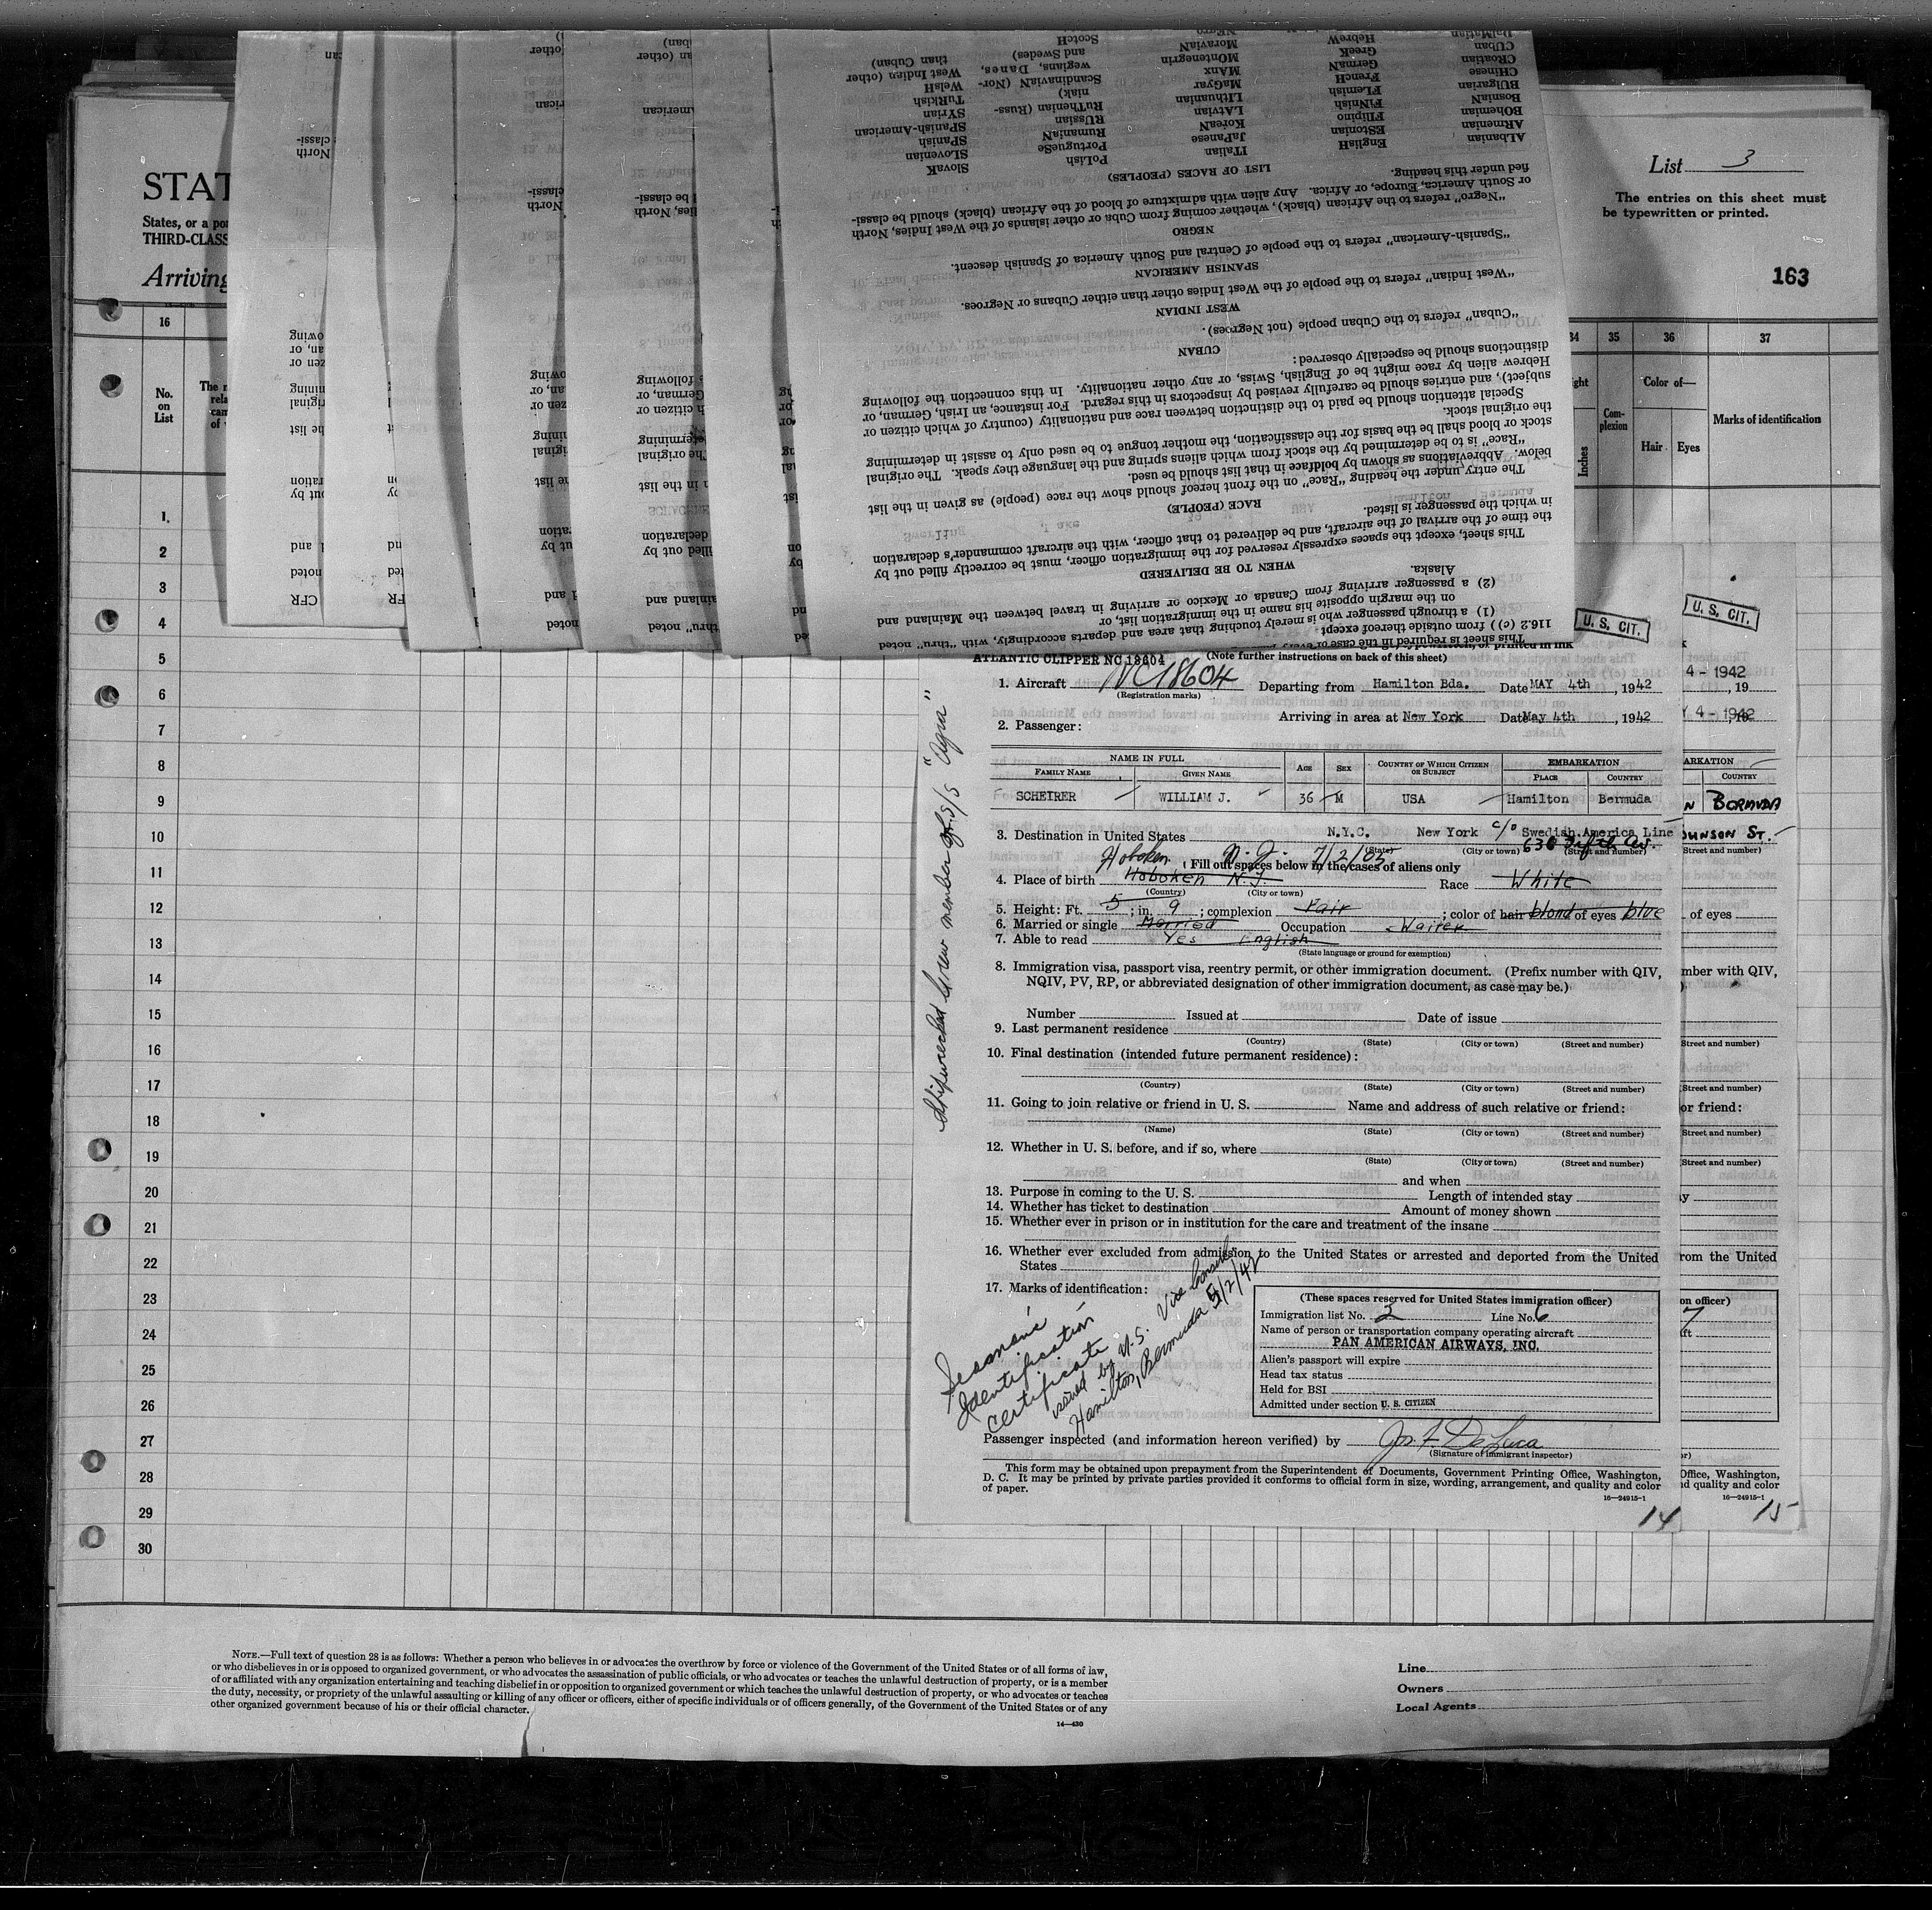 STAT
States, or a por
THIRD-CLASS
Arriving
List 3
The entries on this sheet must
be typewritten or printed.
163
16
34
35
36
37
No.
on
List
Com-
plexion
Color of—
Hair
Eyes
Inches
Marks of identification
1
2
3
4
5
6
7
8
9
10
11
12
13
14
15
16
17
18
19
20
21
22
23
24
25
26
27
28
29
30
This sheet is required in the case of every
116.2 (c)) from outside thereof except
(1) a through passenger who is merely touching that area and departs accordingly, with "thru" noted
on the margin opposite his name in the immigration list, or
(2) a passenger arriving from Canada or Mexico or arriving in travel between the Mainland and
Alaska.
WHEN TO BE DELIVERED
This sheet, except the spaces expressly reserved for the immigration officer, must be correctly filled out by
the time of the arrival of the aircraft, and be delivered to that officer, with the aircraft commander's declaration
in which the passenger is listed.
RACE (PEOPLE)
The entry under the heading "Race" on the front hereof should show the race (people) as given in the list
below. Abbreviations as shown by boldface in that list should be used.
"Race" is to be determined by the stock from which aliens spring and the language they speak. The original
stock or blood shall be the basis for the classification, the mother tongue to be used only to assist in determining
the original stock.
Special attention should be paid to the distinction between race and nationality (country of which citizen or
subject), and entries should be carefully revised by inspectors in this regard. For instance, an Irish, German, or
Hebrew alien by race might be of English, Swiss, or any other nationality. In this connection the following
distinctions should be especially observed:
CUBAN
"Cuban" refers to the Cuban people (not Negroes).
WEST INDIAN
"West Indian" refers to the people of the West Indies other than either Cubans or Negroes.
SPANISH AMERICAN
"Spanish-American" refers to the people of Central and South America of Spanish descent.
NEGRO
"Negro" refers to the African (black), whether coming from Cuba or other islands of the West Indies, North
or South America, Europe, or Africa. Any alien with admixture of blood of the African (black) should be classi-
fied under this heading.
LIST OF RACES (PEOPLES)
ALbanian
ARMenian
BOHemian
BOSniaN
BULgarian
CHInese
CROatian
CUban
DalMatian
EnglisH
EStonian
FIlipino
FINnish
FLemish
FrencH
GermaN
GreeK
HebreW
ITalian
JaPanese
KoreaN
LAtvian
LIthuanian
MaGyar
MAnx
MOntenegrin
MoraviaN
NEgro
PoLish
PortugueSe
RumaniaN
RUssian
RuThenian (Russ-
niak)
ScandinaviaN (Nor-
wegians, Danes,
and Swedes)
ScotcH
SlovaK
SLOvenian
SPanish
SPanish-American
SYrian
TuRkish
WelsH
West Indian (other
than Cuban)
U. S. CIT.
U. S. CIT.
ATLANTIC CLIPPER NC 18604
(Note further instructions on back of this sheet)
1. Aircraft NC18604 Departing from Hamilton Bda. Date MAY 4th, 1942
(Registration marks)
Arriving in area at New York Date May 4th, 1942
2. Passenger:
NAME IN FULL
AGE
SEX
COUNTRY OF WHICH CITIZEN
OR SUBJECT
EMBARKATION
FAMILY NAME
GIVEN NAME
PLACE
COUNTRY
SCHEIRER WILLIAM J. 36 M USA Hamilton Bermuda
3. Destination in United States N.Y.C. New York c/o Swedish America Line
630 Fifth Av.
(State) (City or town) (Street and number)
Hoboken N. J. 7/2/05
Fill out spaces below in the cases of aliens only
4. Place of birth Hoboken N.J. Race White
(Country) (City or town)
5. Height: Ft. 5; in. 9; complexion Fair; color of hair blond of eyes blue
6. Married or single Married Occupation Waiter
7. Able to read Yes English
(State language or ground for exemption)
8. Immigration visa, passport visa, reentry permit, or other immigration document. (Prefix number with QIV,
NQIV, PV, RP, or abbreviated designation of other immigration document, as case may be.)
Number Issued at Date of issue
9. Last permanent residence
(Country) (State) (City or town) (Street and number)
10. Final destination (intended future permanent residence):
(Country) (State) (City or town) (Street and number)
11. Going to join relative or friend in U. S. Name and address of such relative or friend:
(Name) (State) (City or town) (Street and number)
12. Whether in U. S. before, and if so, where
(State) (City or town) (Street and number)
and when
13. Purpose in coming to the U. S. Length of intended stay
14. Whether has ticket to destination Amount of money shown
15. Whether ever in prison or in institution for the care and treatment of the insane
16. Whether ever excluded from admission to the United States or arrested and deported from the United
States
17. Marks of identification:
Shipwrecked Crew member of S/S "Agra"
Seaman's
Identification
Certificate
issued by U.S. Vice Consul
Hamilton, Bermuda 5/2/42
(These spaces reserved for United States immigration officer)
Immigration list No. 2 Line No. 6
Name of person or transportation company operating aircraft
PAN AMERICAN AIRWAYS, INC.
Alien's passport will expire
Head tax status
Held for BSI
Admitted under section U. S. CITIZEN
Passenger inspected (and information hereon verified) by Jos. F. DeLuca
(Signature of immigrant inspector)
This form may be obtained upon prepayment from the Superintendent of Documents, Government Printing Office, Washington,
D. C. It may be printed by private parties provided it conforms to official form in size, wording, arrangement, and quality and color
of paper.
16—24915-1
14
4 - 1942
Y 4 - 1942
ARKATION
COUNTRY
N BERMUDA
OHNSON ST.
(Street and number)
of eyes
mber with QIV,
or friend:
rom the United
on officer)
7
Office, Washington,
nd quality and color
16—24915-1
15
NOTE.—Full text of question 28 is as follows: Whether a person who believes in or advocates the overthrow by force or violence of the Government of the United States or of all forms of law,
or who disbelieves in or is opposed to organized government, or who advocates the assassination of public officials, or who advocates or teaches the unlawful destruction of property, or is a member
of or affiliated with any organization entertaining and teaching disbelief in or opposition to organized government or which teaches the unlawful destruction of property, or who advocates or teaches
the duty, necessity, or propriety of the unlawful assaulting or killing of any officer or officers, either of specific individuals or of officers generally, of the Government of the United States or of any
other organized government because of his or their official character.
14—430
Line
Owners
Local Agents